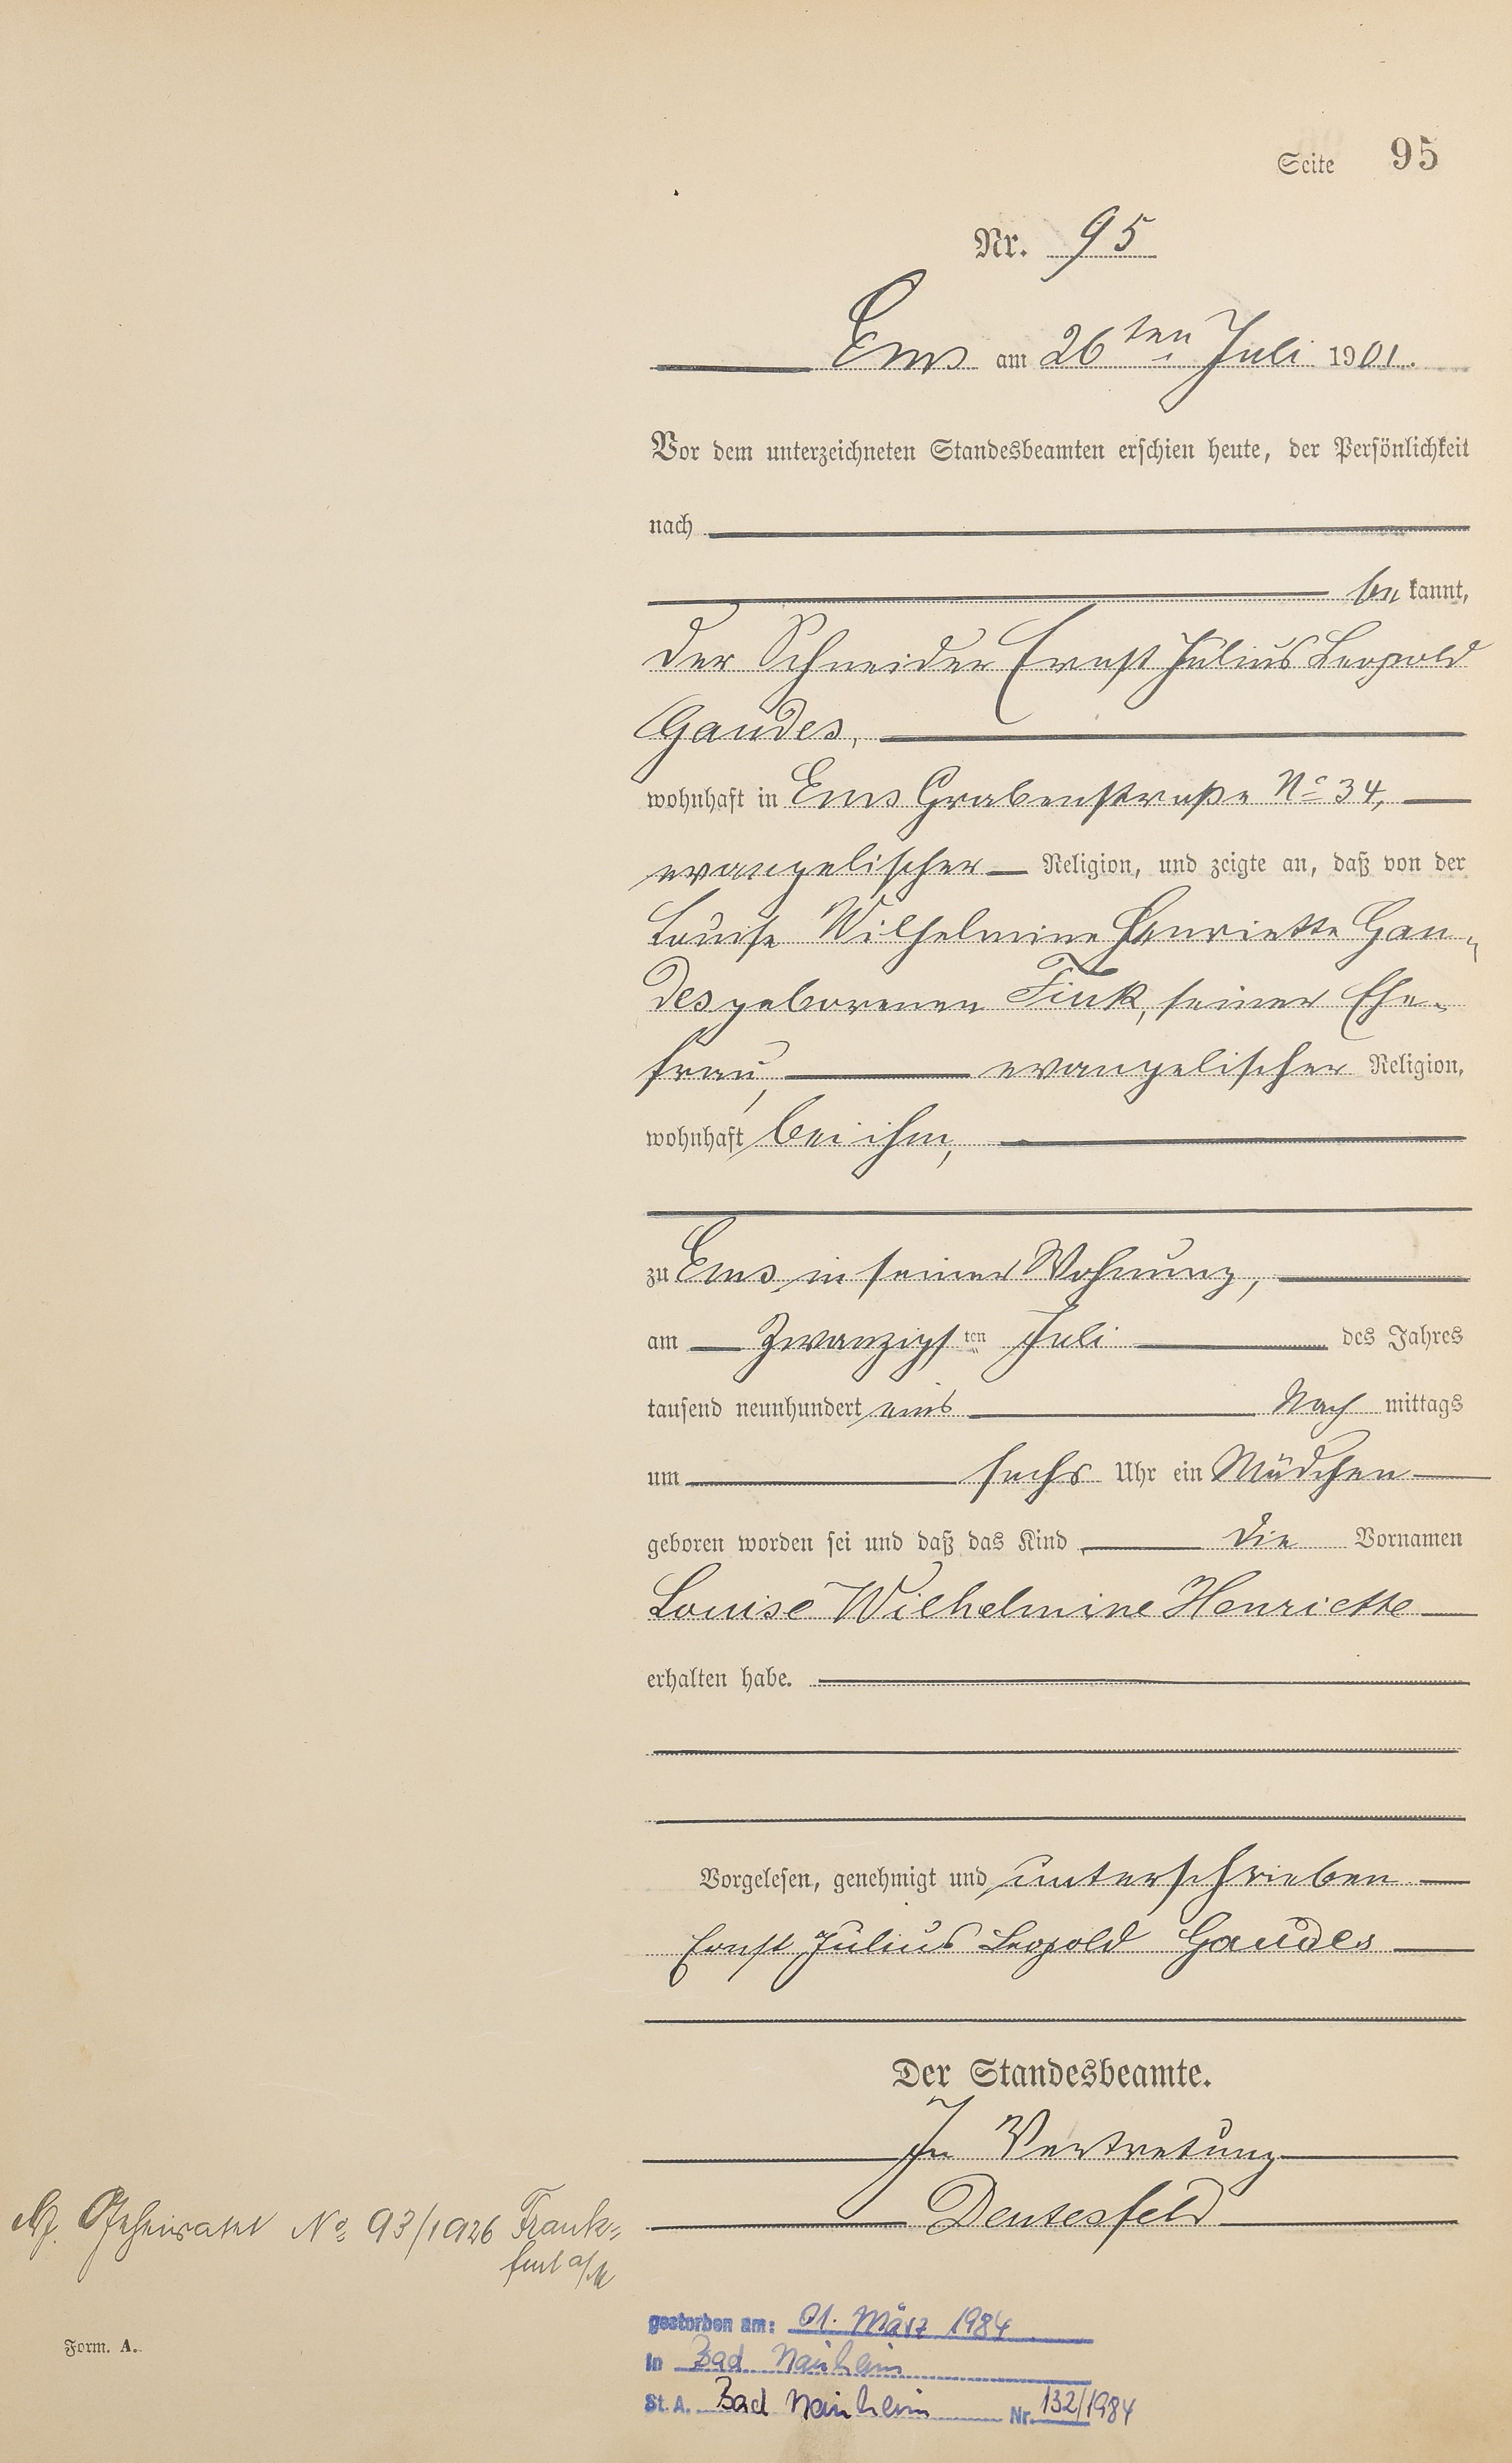 Seite 95
Nr. 95
Ems am 26ten Juli 1901.
Vor dem unterzeichneten Standesbeamten erschien heute, der Persönlichkeit
nach
be kannt,
der Schneider Ernst Julius Leopold
Gaudes,
wohnhaft in Ems Grabenstraße No 34,
evangelischer Religion, und zeigte an, daß von der
Louise Wilhelmine Henriette Gau-
des geborenen Fink, seiner Ehe-
frau, evangelischer Religion,
wohnhaft bei ihm,
zu Ems in seiner Wohnung,
am Zwanzigsten Juli des Jahres
tausend neunhundert eins Nach mittags
um sechs Uhr ein Mädchen
geboren worden sei und daß das Kind die Vornamen
Louise Wilhelmine Henriette
erhalten habe.
Vorgelesen, genehmigt und unterschrieben
Ernst Julius Leopold Gaudes
Der Standesbeamte.
In Vertretung
Deutesfeld
No 93/1926 Frank-
furt a/M
Form. A.
gestorben am: 01. März 1984
in Bad Nauheim
St. A. Bad Nauheim Nr. 132/1984